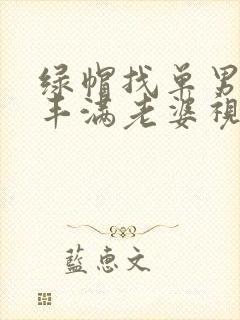 绿帽找单男
丰满老婆視
藍惠文